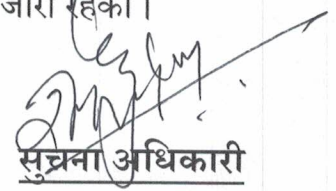 जारी रहेको।
सुचना अधिकारी